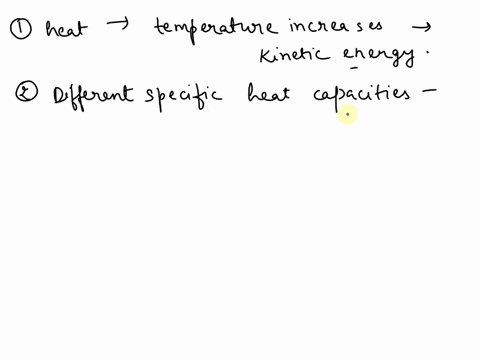 ① heat → temperature increases →
Kinetic energy.
② Different specific heat capacities -